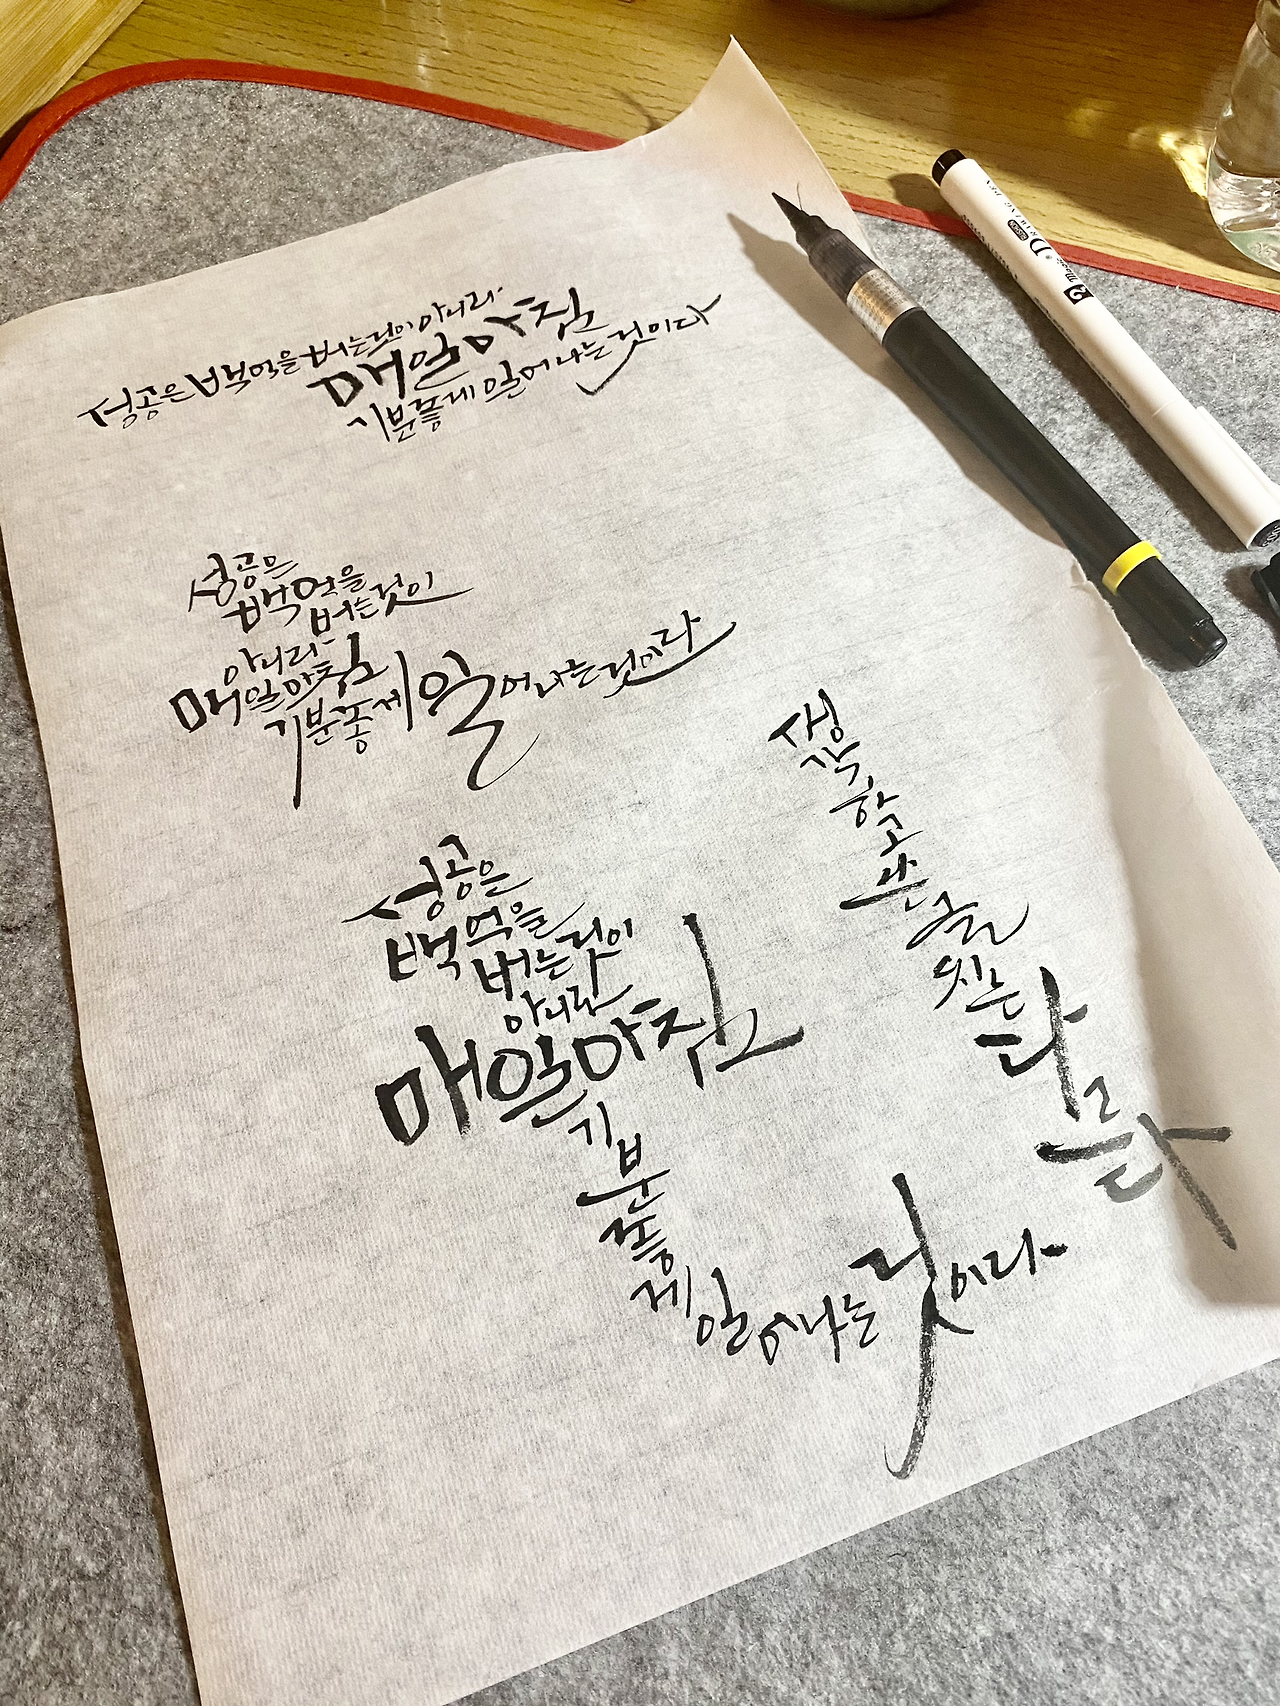 성공은 백억을 버는것이 아니라
매일아침
기분좋게 일어나는것이다
성공은
백억을
버는것이
아니라
매일아침
기분좋게 일어나는것이라
성공은
백억을
버는것이
아니라
매일아침
기
분
좋
게
일어나는 것이라
생
각
하
고
쓰는
글
씨는
다
르
다
DRAWING PEN